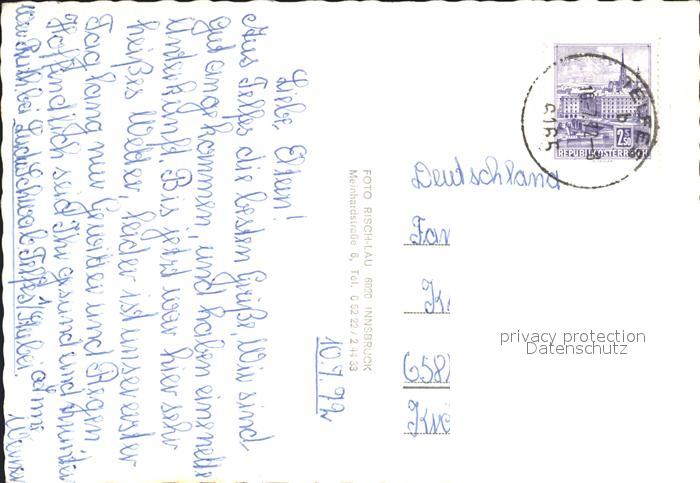 10.7.72
Liebe Eltern!
Aus Telfes die besten Grüße, wir sind
gut angekommen, und haben eine nette
Unterkunft. Bis jetzt war hier sehr
heißes Wetter, leider ist unser erster
Tag lang nur Gewitter und Regen
Hoffentlich seid Ihr gesund und munter
bei Telfes/Stubai
FOTO RISCH-LAU 6020 INNSBRUCK
Meinhardstraße 8, Tel. 0 52 22 / 2
TELFES
b
6165
2.50
REPUBLIK ÖSTERREICH
Deutschland
Fam
658
privacy protection
Datenschutz